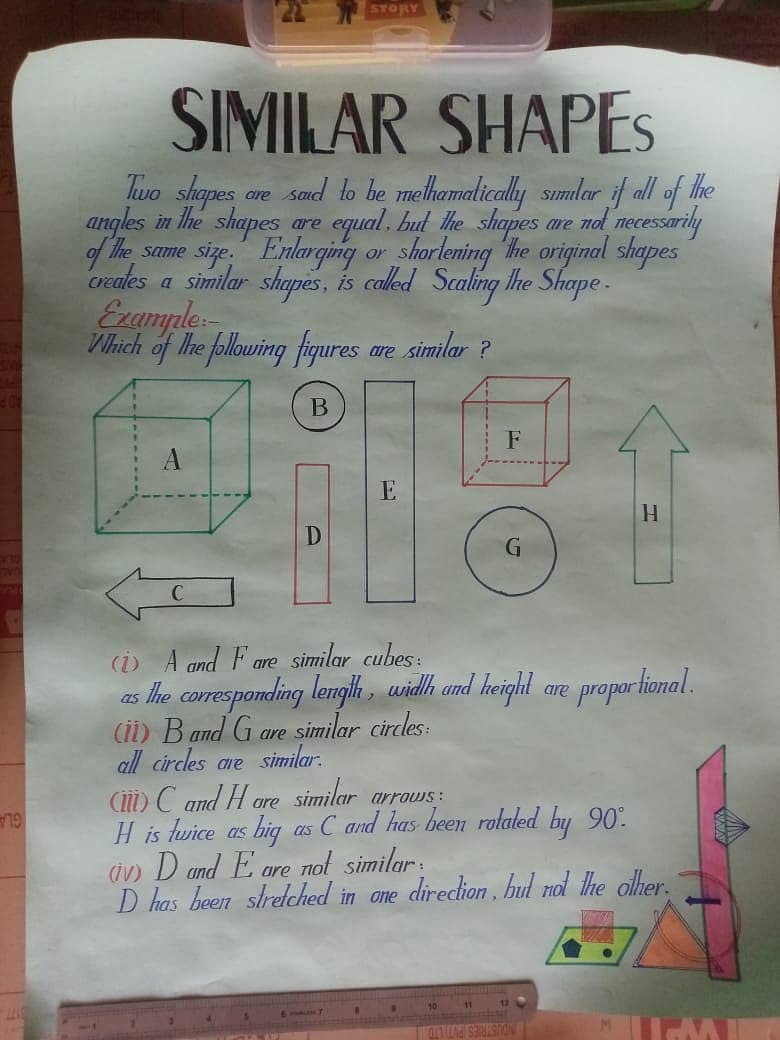 STORY
SIMILAR SHAPES
Two shapes are said to be methamatically similar if all of the
angles in the shapes are equal, but the shapes are not necessarily
of the same size. Enlarging or shortening the original shapes
creates a similar shapes, is called Scaling the Shape.
Example:-
Which of the following figures are similar ?
A
B
E
D
C
F
G
H
(i) A and F are similar cubes:
as the corresponding length, width and height are proportional.
(ii) B and G are similar circles:
all circles are similar.
(iii) C and H are similar arrows:
H is twice as big as C and has been rotated by 90°.
(iv) D and E are not similar:
D has been stretched in one direction, but not the other.
1 2 3 4 5 6 7 8 9 10 11 12
INDUSTRIES (PVT) LTD